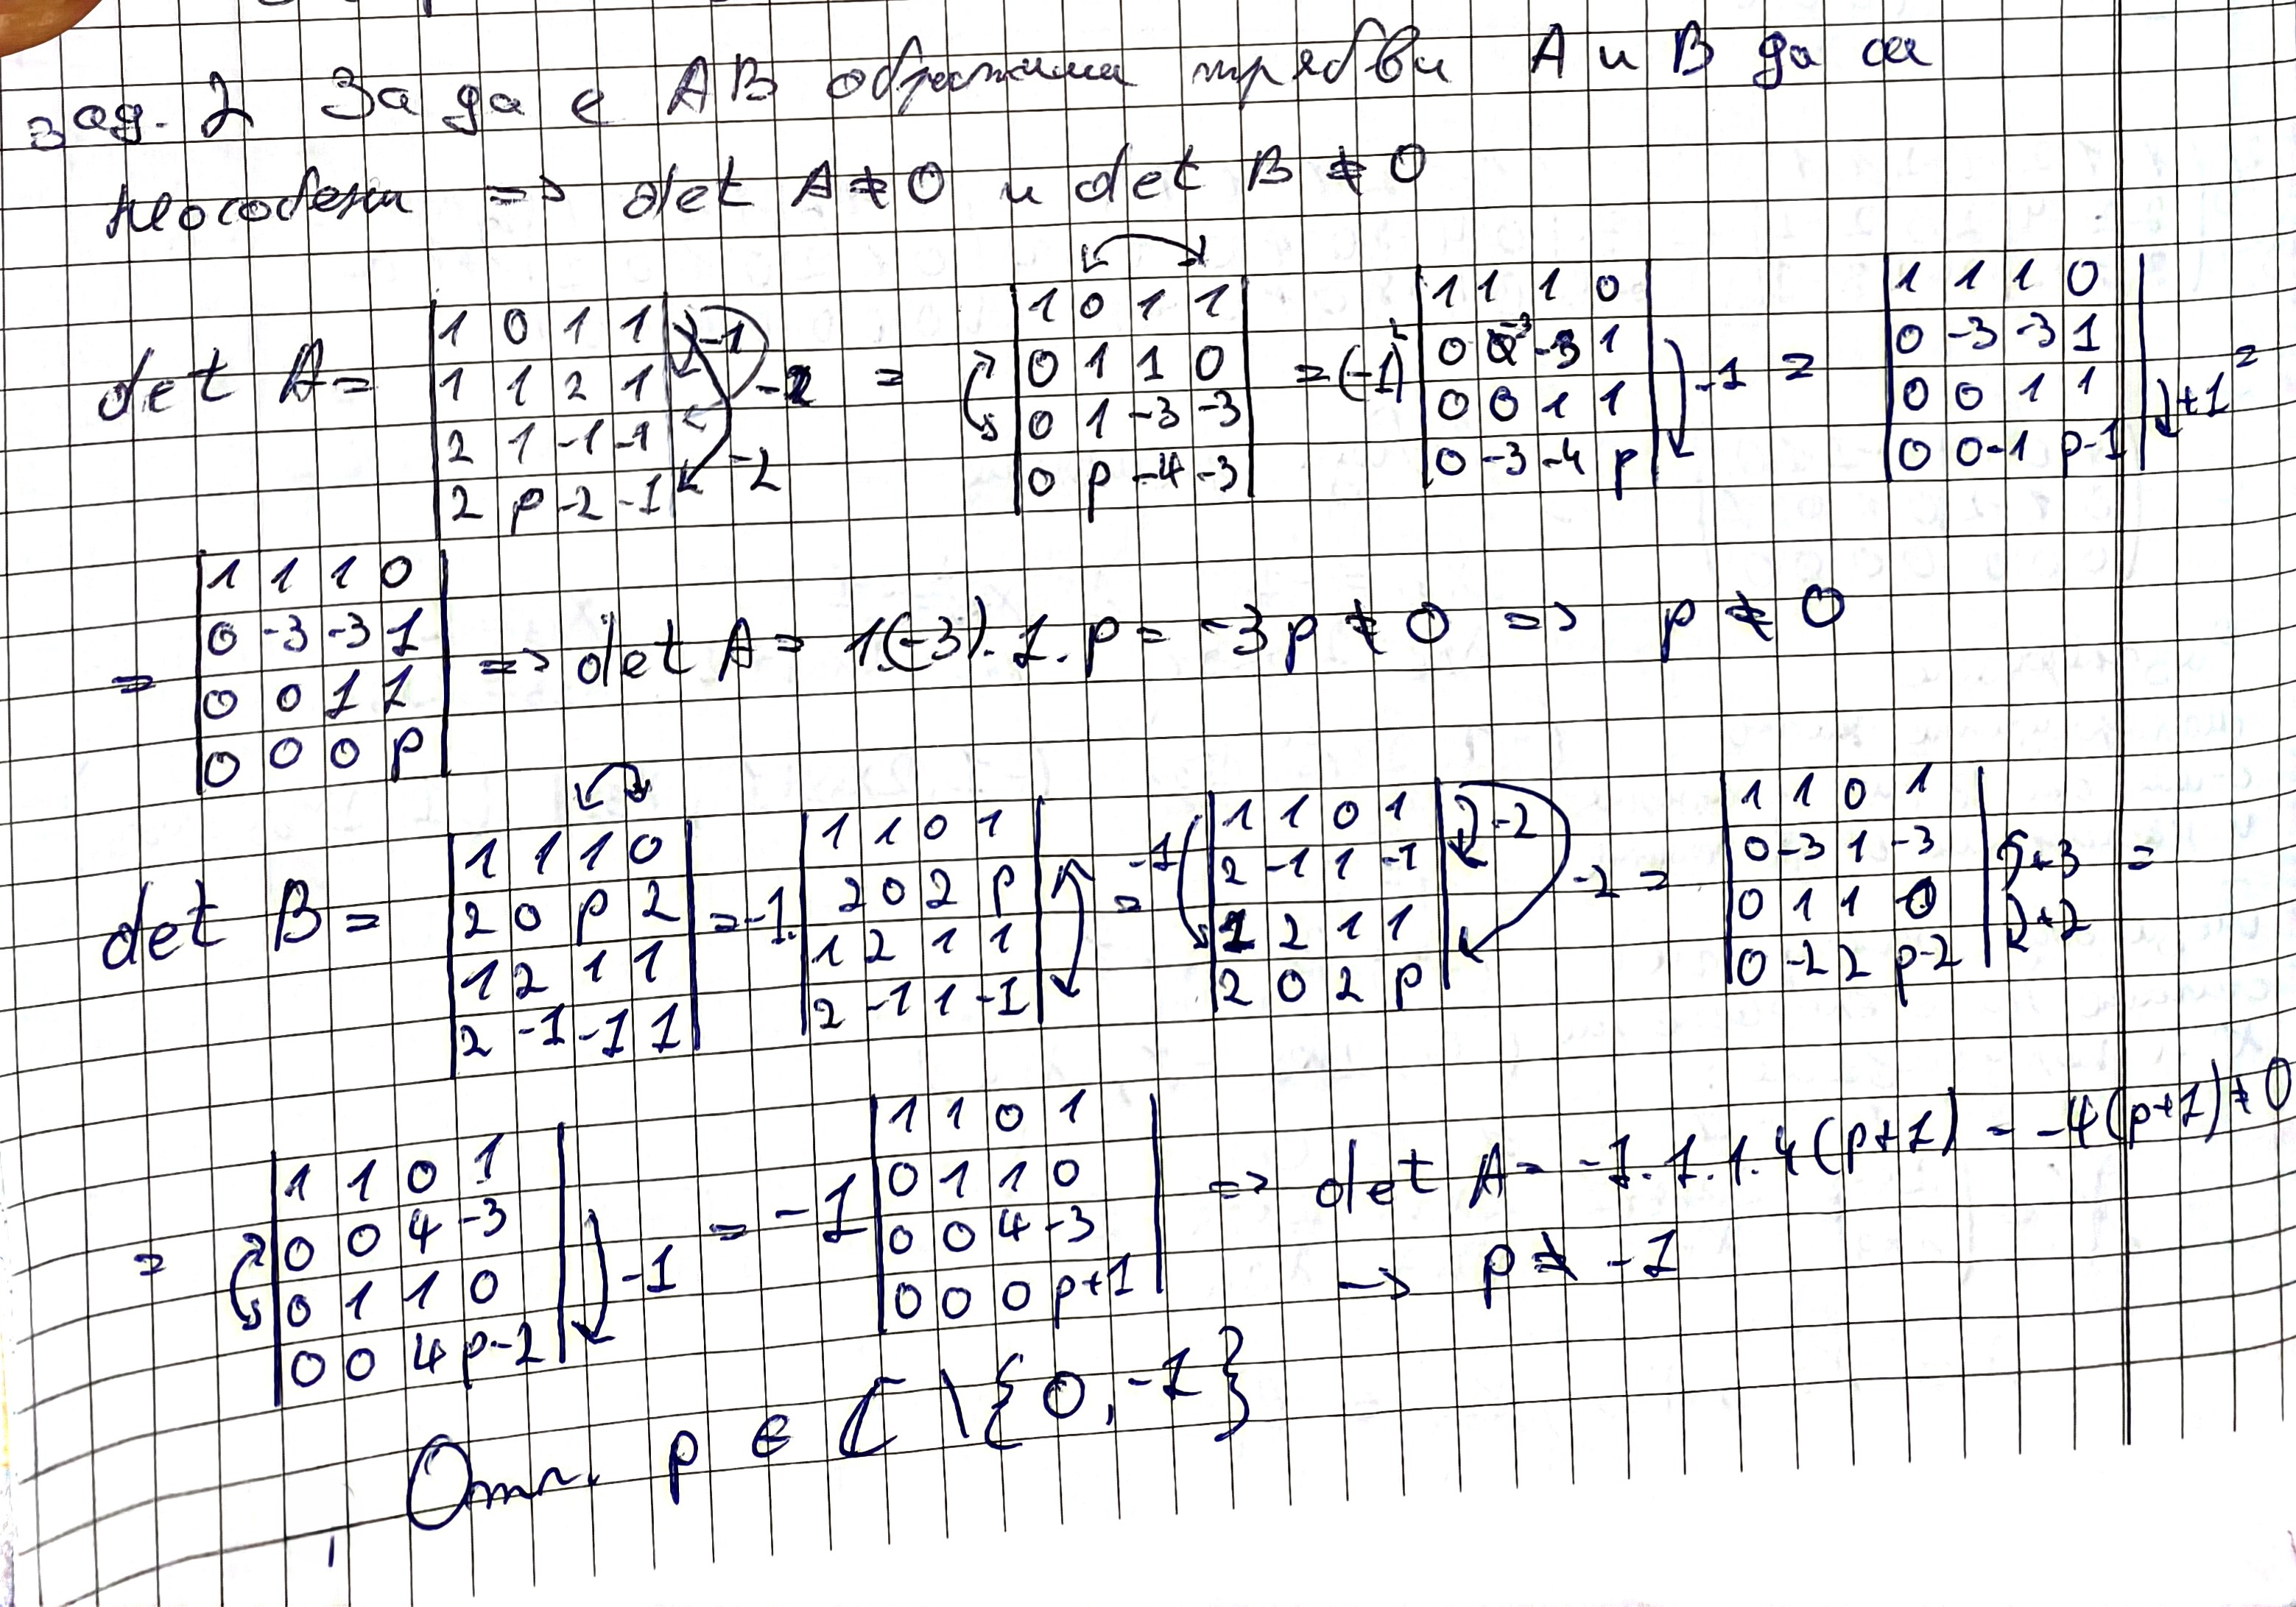 зад. 2 За да е AB обратима трябва A и B да са
неособени => det A ≠ 0 и det B ≠ 0
det A = |1 0 1 1; 1 1 2 1; 2 1 -1 -1; 2 p -2 -1| -1 -2 -2 = |1 0 1 1; 0 1 1 0; 0 1 -3 -3; 0 p -4 -3| = (-1) |1 1 1 0; 0 -3 -3 1; 0 0 1 1; 0 -3 -4 p| -1 = |1 1 1 0; 0 -3 -3 1; 0 0 1 1; 0 0 -1 p-1| +1 =
= |1 1 1 0; 0 -3 -3 1; 0 0 1 1; 0 0 0 p| => det A = 1.(-3).1.p = -3p ≠ 0 => p ≠ 0
det B = |1 1 1 0; 2 0 p 2; 1 2 1 1; 2 -1 -1 1| = -1. |1 1 0 1; 2 0 2 p; 1 2 1 1; 2 -1 1 -1| = -1 |1 1 0 1; 2 -1 1 -1; 1 2 1 1; 2 0 2 p| -2 -2 = |1 1 0 1; 0 -3 1 -3; 0 1 1 0; 0 -2 2 p-2| +3 +2 =
= |1 1 0 1; 0 0 4 -3; 0 1 1 0; 0 0 4 p-2| -1 = -1 |1 1 0 1; 0 1 1 0; 0 0 4 -3; 0 0 0 p+1| => det A = -1.1.1.4(p+1) = -4(p+1) ≠ 0
-> p ≠ -1
Отг. p ∈ ℂ \ {0, -1}